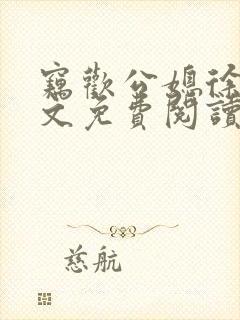 竊歡公媳徐
文免費閱讀
慈航